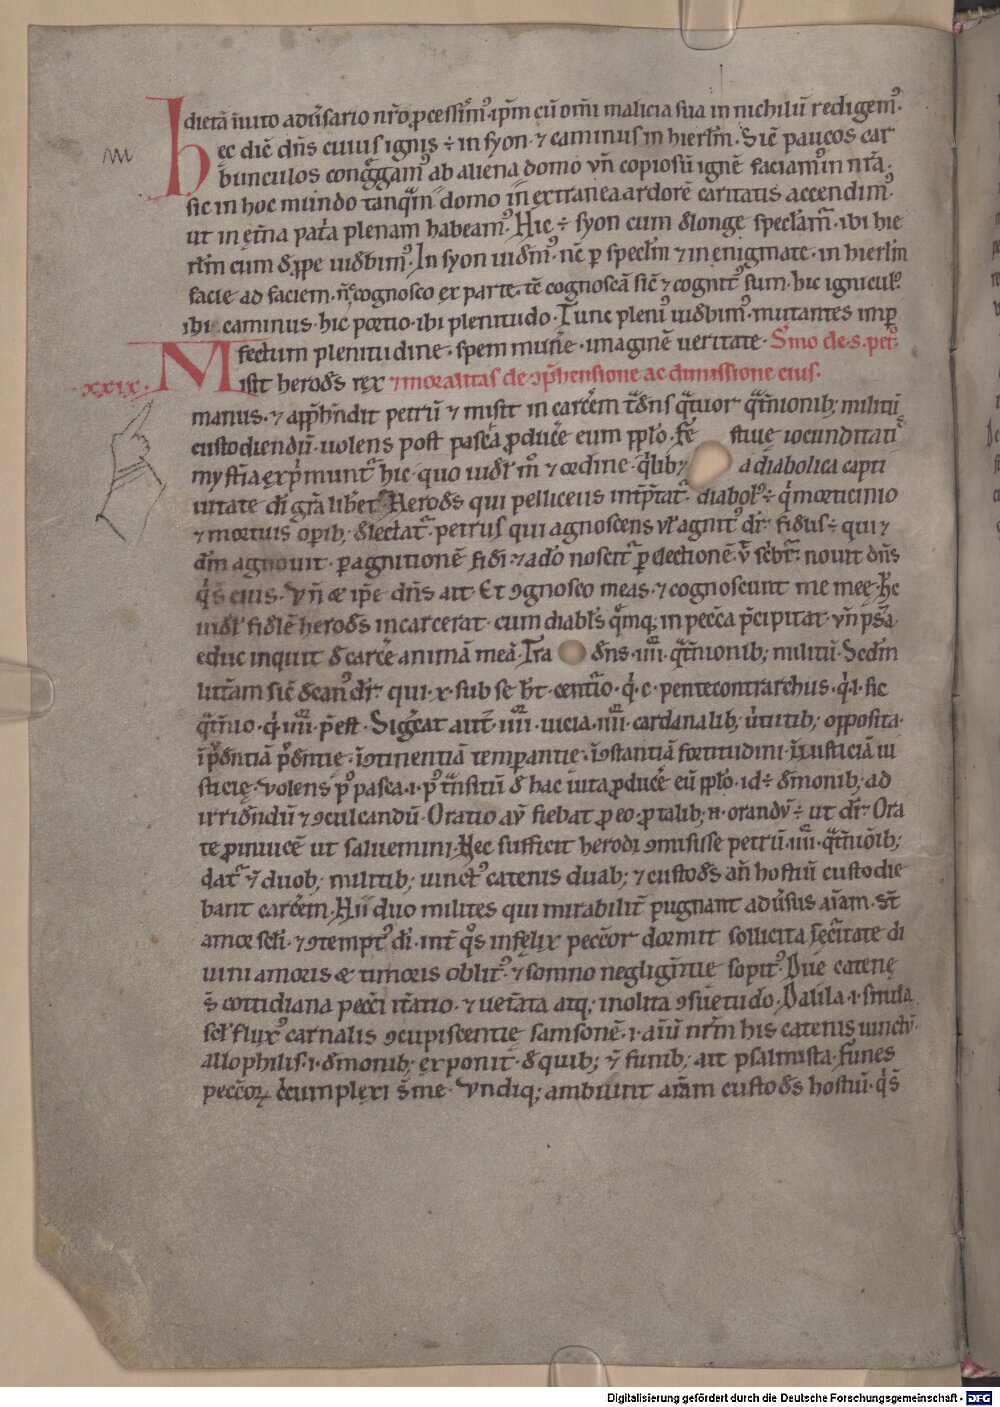 dietā īuito adũsario nr̄o ꝓcessim᷒ ip̄m cū om̄i malicia sua in nichilū redigem᷒.
hec diē dn̄s cuius ignis ÷ in syon ⁊ caminus in hierlm̄. Siē paucos car
bunculos congͣgam᷒ ab aliena domo vn̄ copiosū ignē faciam᷒ in nr̄a.
sic in hoc mundo tanqͣm domo in extranea ardorē caritatis accendim᷒.
ut in et̄na pat̄a plenam habeam᷒. Hic ÷ syon cum ꝺlonge specl̄am̄. ibi hie
rl̄m cum ꝺ ꝓpe uidbim᷒. In syon uidm᷒ nc̄ ꝑ specl̄m ⁊ in enigmate. in hierl̄m
facie ad faciem. nc̄ cognosco ex parte. tc̄ cognoscā sic̄ ⁊ cognit᷒ sum. hic ignicul᷒.
ibi caminus. hic portio. ibi plenitudo. Tunc pleni᷒ uidbim᷒. mutantes imp̄
fectum plenitudine. spem mun̄e. imaginē ueritate. Sm̄o de .s. pet᷒.
xxix. Misit herodꝭ rex ⁊ moralitas de ꝯp̄hensione ac dimissione eius.
manus. ⁊ app̄hn̄dit petrū ⁊ misit in carcēm t̄dn̄s qͣtuor qͣt̄nionib; militū
custodiendū. uolens post pascā ꝓducē eum pp̄lo. fe stiue iocunditati᷒
mysti̅a exp̄muntᷣ hic. quo uidl̄ m̊ ⁊ ordine qͥlib; a diabolica capti
uitate di̅ gr̄a libet᷒. Herodꝭ qui pelliceus int̄p̄tatᷣ. diabol᷒ ÷ qͥ morticinio
⁊ mortuis op̄ib; ꝺlectatᷣ. petrus qui agnoscens vl̄ agnit᷒ dr̄. fidl̄is ÷ qui ⁊
dm̄ agnouit. ꝑ agnitionē fidi̅. ⁊ a do̅ noscitᷣ ꝑ electionē. v̄ sc̄bit̄. nouit dn̄s
qͥ s̄ eius. Vn̄ & ip̄e dn̄s ait. Et ꝯgnosco meas. ⁊ cognoscunt me mee. Hc̄
uidl̄ fidlē herodꝭ incarcerat. cum diabl̄s qͥmq; in pecc̄a p̄cipitat. vn̄ ps̄a
educ inquit ꝺ carcē animā meā. Tra ꝺn̄s .iiii. qͣt̄nionib; militū. Sedm̄
litam̄ sic̄ ꝺcan᷒ dr̄. qui .x. sub se ht̄. centīo. qͥ .c. pentecontrarchus. qͥ .l. sic
qͣt̄nio. qͥ .iiii. p̄est. Sigᷓcat aut̄ .iiii. uicia .iiii. cardanalib; ūtutib; opposita.
īp̄ꝺntiā p̄ꝺntie. īꝯtinentiā temꝑantie. īꝯstantiā fortitudini. īiusticiā iu
sticie. volens p᷒ pasca .i. p᷒ tͣnsitū ꝺ hac uita ꝓducē eū pp̄lo. id ÷ ꝺmonib; ad
irridn̄dū ⁊ ꝯculcandū. Oratio aū fiebat ꝓ eo. ꝓ talib; n̄. orandū ÷ ut dr̄. Ora
te ꝓ inuicē ut saluemini. Hec sufficit herodi ꝯmisisse petrū .iiii. qͣt̄niōib;
datᷣ ⁊ duob; militib; uinct᷒ catenis duab; ⁊ custodꝭ an̄ hostiū custodie
bant carcēm. Hii duo milites qui mirabilit̄ pugnant adūsus aīam. st̄
amor scl̄i. ⁊ ꝯtempt᷒ di̅. int̄ qͦs infelix peccōr dormit sollicita secᷣitate di
uini amoris & timoris oblit᷒. ⁊ somno neglign̄tie sopit᷒. Due catene
s̄ cottidiana pecc̄i it̄atio. ⁊ uet̄ata atq; inolita ꝯsuetudo. Dalila .i. situla
scl̄. flux᷒ carnalis ꝯcupiscentie samsonē .i. aīū nr̄m his catenis uinctū.
allophilis .i. ꝺmonib; exponit. ꝺ quib; ⁊ funib; ait psalmista. funes
peccōꝝ cc̄umplexi s̄ me. Vndiq; ambiunt aīam custodꝭ hostiū. qͥ s̄